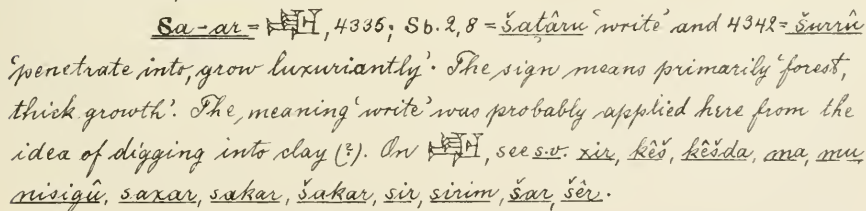 Sa-ar = 𒊬, 4335; Sb. 2, 8 = šaṭâru 'write' and 4342 = šurrû
'penetrate into, grow luxuriantly'. The sign means primarily 'forest,
thick growth'. The meaning 'write' was probably applied here from the
idea of digging into clay (?). On 𒊬, see s.v. xir, kêš, kêšda, ma, mu,
nisigû, saxar, sakar, šakar, sir, sirim, šar, šêr.